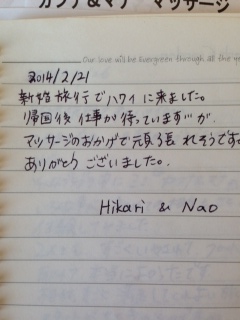 カップル&マナー マッサージ
Our love will be Evergreen through all the ye
2014/2/21
新婚旅行でハワイに来ました。
帰国後仕事が待っていますが、
マッサージのおかげで頑張れそうです
ありがとうございました。
Hikari & Nao